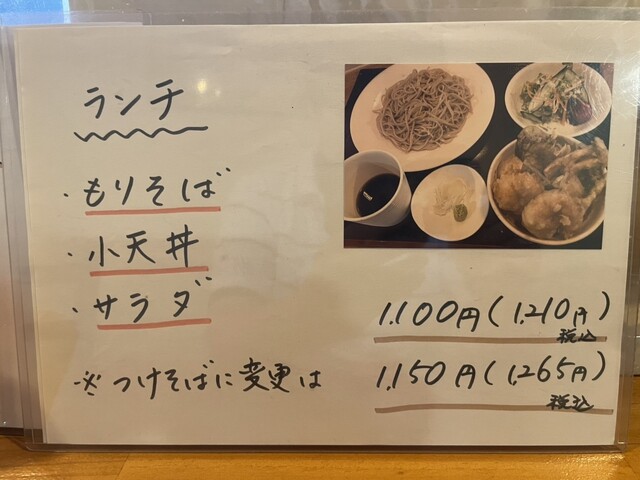 ランチ
・もりそば
・小天丼
・サラダ
1,100円(1,210円)
税込
※つけそばに変更は
1,150円(1,265円)
税込